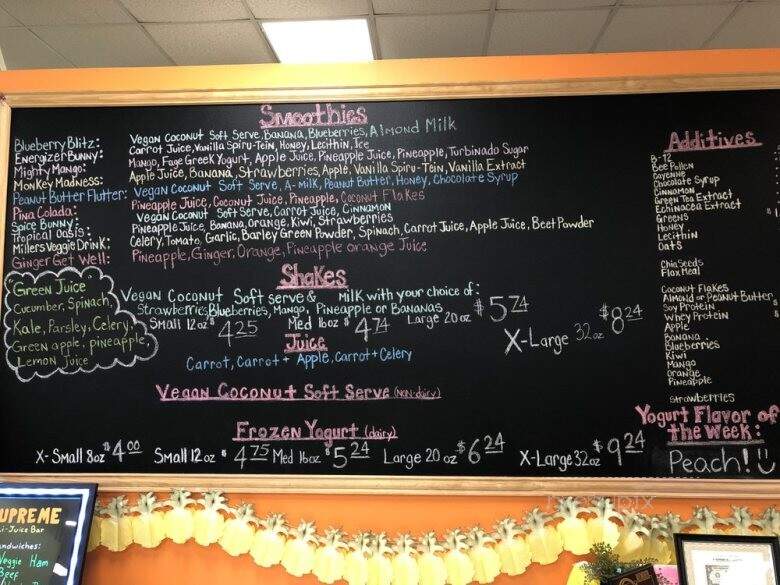 Smoothies
Blueberry Blitz: Vegan Coconut Soft Serve, Banana, Blueberries, Almond Milk
Energizer Bunny: Carrot Juice, Vanilla Spiru-Tein, Honey, Lecithin, Ice
Mighty Mango: Mango, Fage Greek Yogurt, Apple Juice, Pineapple Juice, Pineapple, Turbinado Sugar
Monkey Madness: Apple Juice, Banana, Strawberries, Apple, Vanilla Spiru-Tein, Vanilla Extract
Peanut Butter Flutter: Vegan Coconut Soft Serve, A-milk, Peanut Butter, Honey, Chocolate Syrup
Pina Colada: Pineapple Juice, Coconut Juice, Pineapple, Coconut Flakes
Spice Bunny: Vegan Coconut Soft Serve, Carrot Juice, Cinnamon
Tropical Oasis: Pineapple Juice, Banana, Orange, Kiwi, Strawberries
Millers Veggie Drink: Celery, Tomato, Garlic, Barley Green Powder, Spinach, Carrot Juice, Apple Juice, Beet Powder
Ginger Get Well: Pineapple, Ginger, Orange, Pineapple orange Juice
Green Juice
Cucumber, Spinach,
Kale, Parsley, Celery,
Green apple, pineapple,
Lemon Juice
Shakes
Vegan Coconut Soft serve & milk with your choice of:
Strawberries, Blueberries, Mango, Pineapple or Bananas
Small 12oz $4.25 Med 16oz $4.74 Large 20oz $5.74 X-Large 32oz $8.24
Juice
Carrot, Carrot + Apple, Carrot + Celery
Vegan Coconut Soft Serve (non-dairy)
Frozen Yogurt (dairy)
X-Small 8oz $4.00 Small 12oz $4.75 Med 16oz $5.24 Large 20oz $6.24 X-Large 32oz $9.24
Additives
B-12
Bee Pollen
Cayenne
Chocolate Syrup
Cinnamon
Green Tea Extract
Echinacea Extract
Greens
Honey
Lecithin
Oats
Chia Seeds
Flax Meal
Coconut Flakes
Almond or Peanut Butter
Soy Protein
Whey Protein
Apple
Banana
Blueberries
Kiwi
Mango
Orange
Pineapple
Strawberries
Yogurt Flavor of
the Week:
Peach!
UPREME
i-Juice Bar
andwiches:
Veggie Ham
Beef